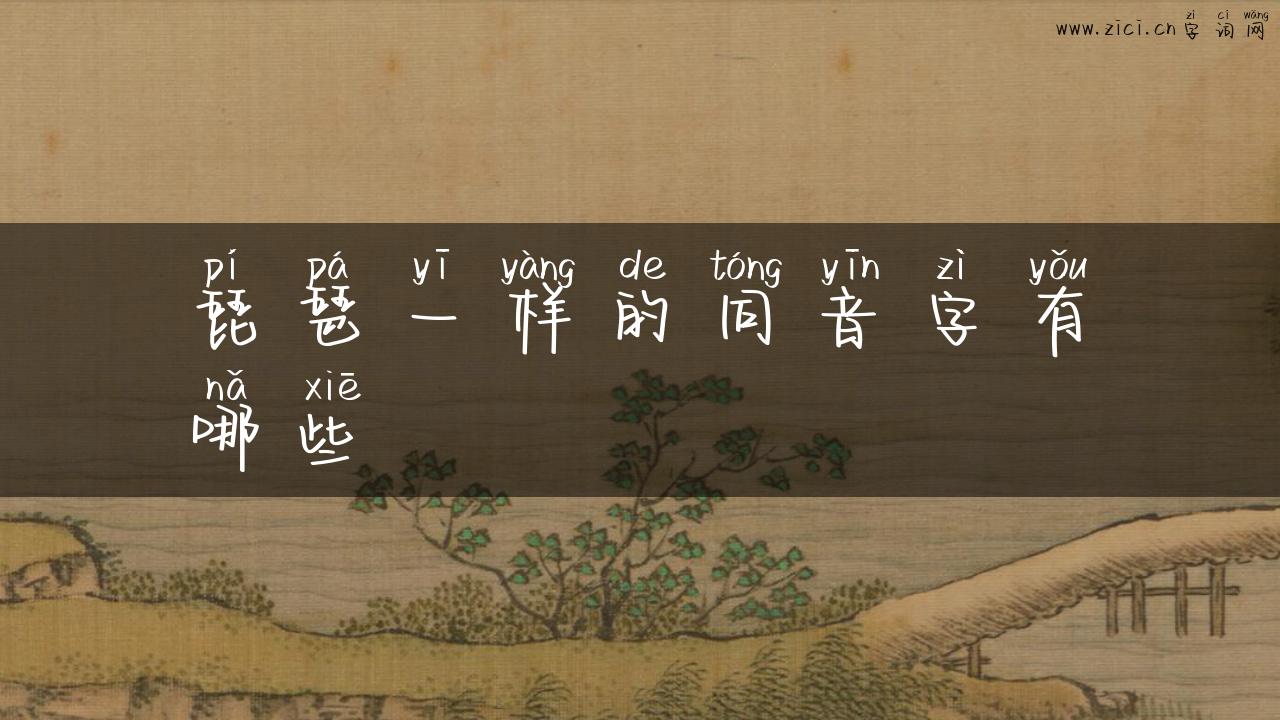 zì cí wǎng
www.zici.cn 字 词 网
pí pá yī yàng de tóng yīn zì yǒu
琵 琶 一 样 的 同 音 字 有
nǎ xiē
哪 些